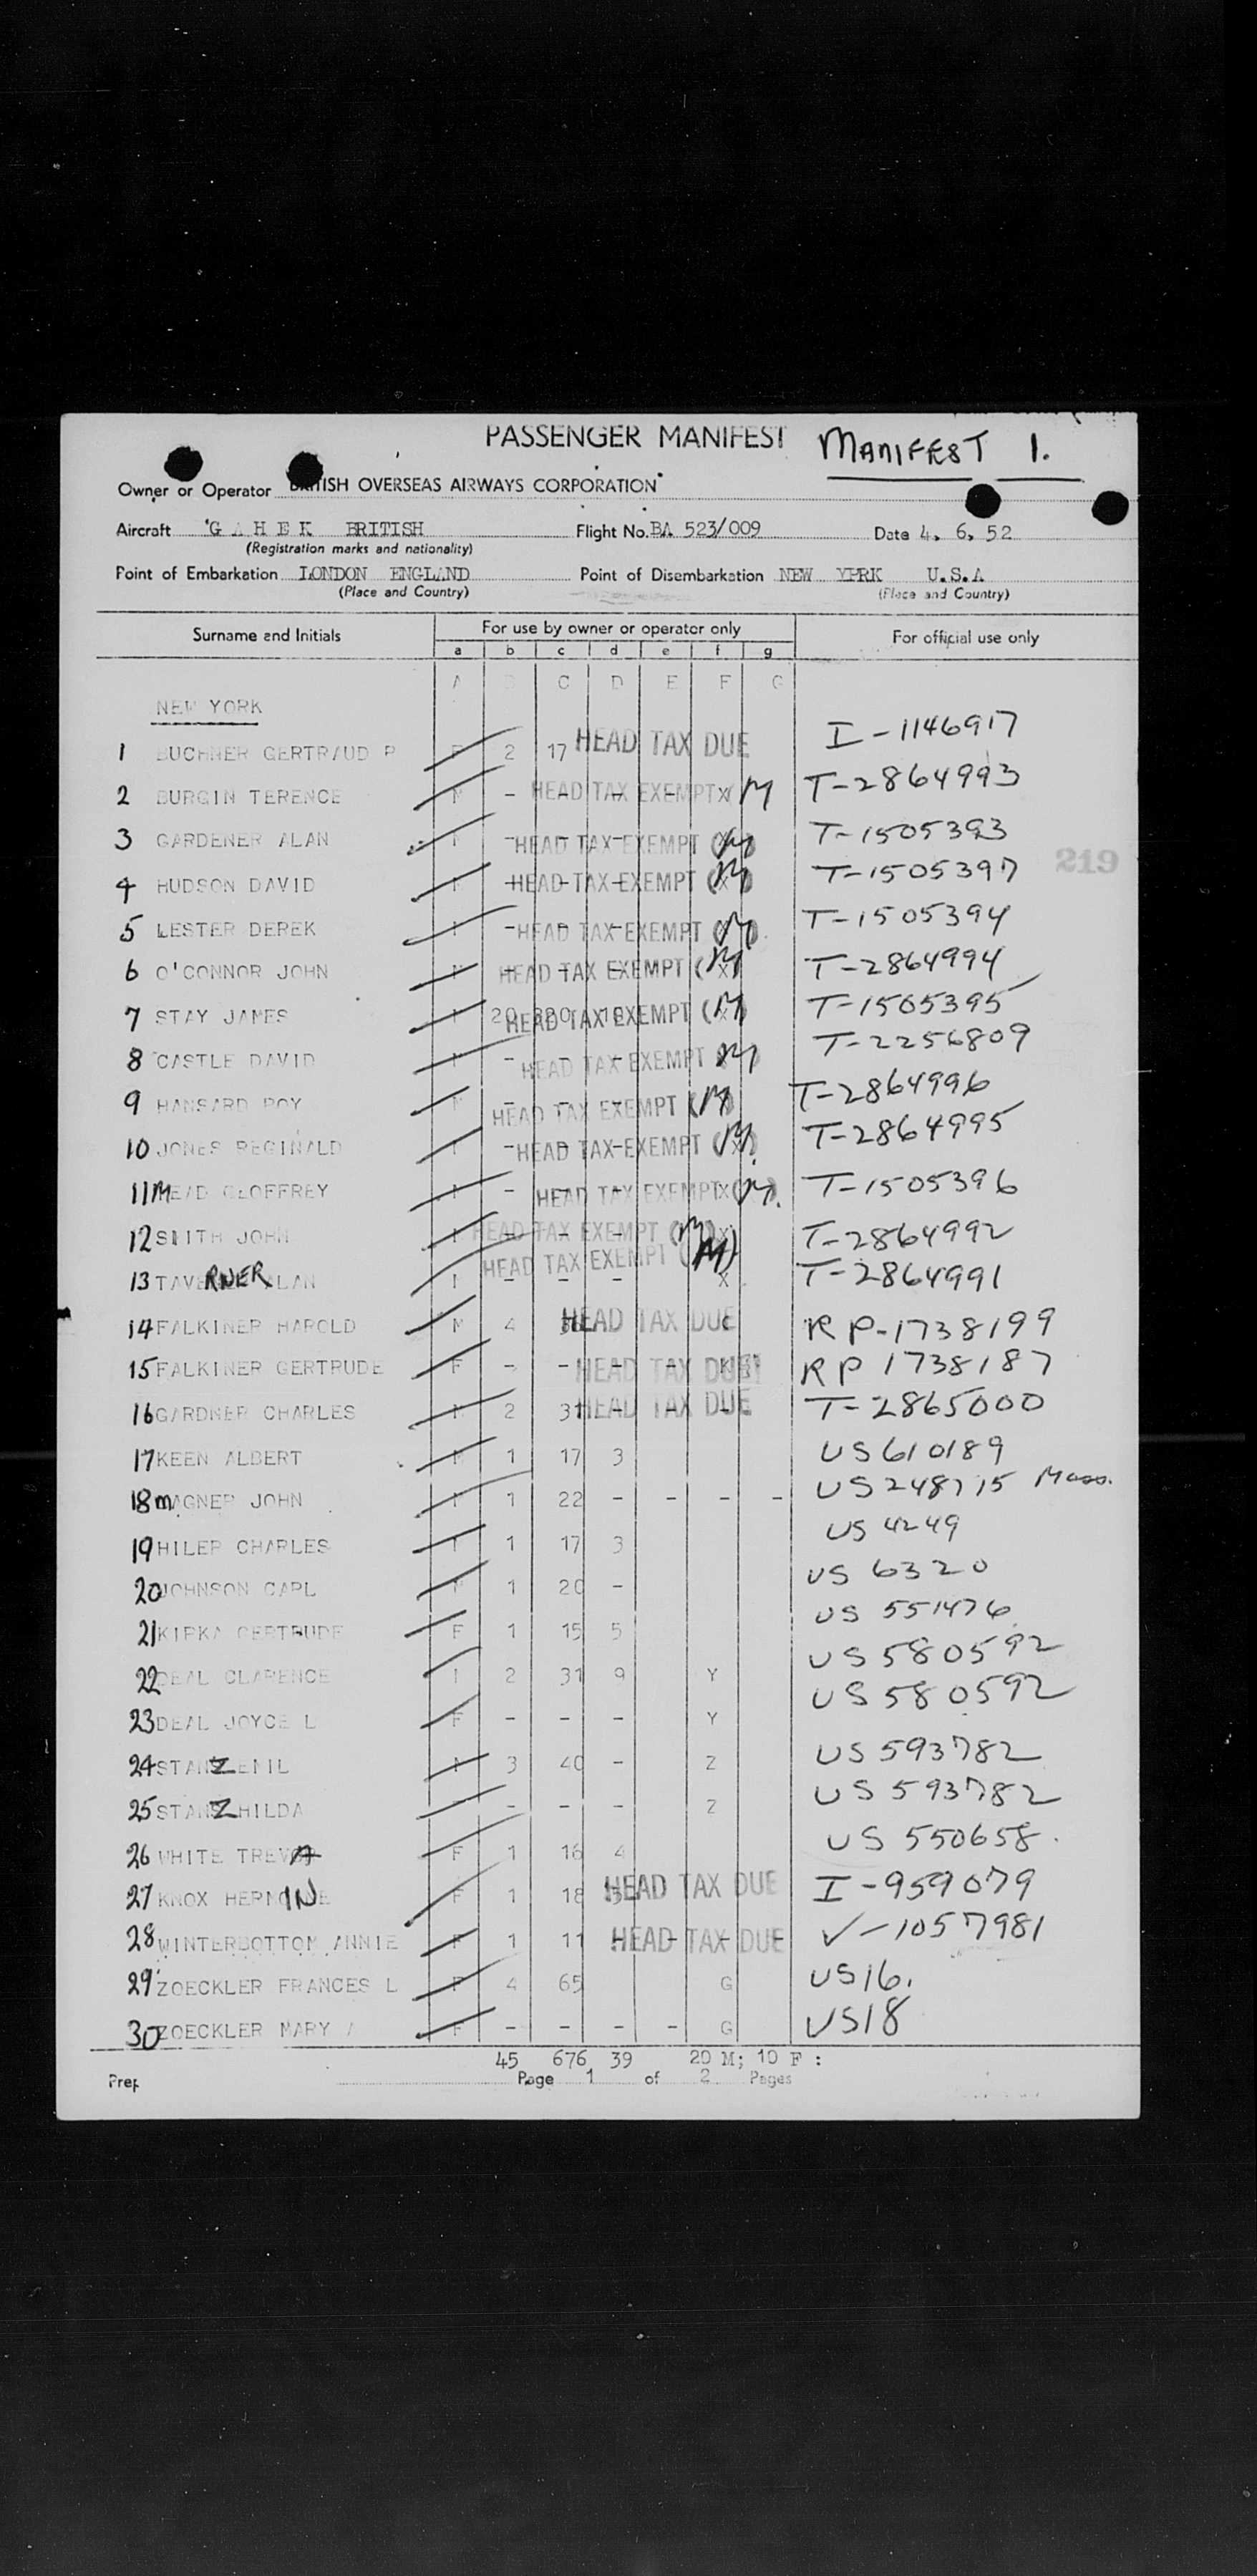 PASSENGER MANIFEST MANIFEST 1.
Owner or Operator BRITISH OVERSEAS AIRWAYS CORPORATION
Aircraft G A H E K BRITISH Flight No. BA 523/009 Date 4. 6. 52
(Registration marks and nationality)
Point of Embarkation LONDON ENGLAND Point of Disembarkation NEW YPRK U.S.A
(Place and Country) (Place and Country)
Surname and Initials For use by owner or operator only For official use only
a b c d e f g
A B C D E F G
NEW YORK
1 BUCHNER GERTRAUD P F 2 17 HEAD TAX DUE I-1146917
2 BURGIN TERENCE M - HEAD TAX EXEMPT X M T-2864993
3 GARDENER ALAN - HEAD TAX EXEMPT (M) T-1505393
219
4 HUDSON DAVID M HEAD TAX EXEMPT (M) T-1505397
5 LESTER DEREK - HEAD TAX EXEMPT (M) T-1505394
6 O'CONNOR JOHN M HEAD TAX EXEMPT (M) T-2864994
7 STAY JAMES M 20 HEAD TAX EXEMPT (M) T-1505395
8 CASTLE DAVID M - HEAD TAX EXEMPT M T-2256809
9 HANSARD ROY M HEAD TAX EXEMPT (M) T-2864996
10 JONES REGINALD - HEAD TAX EXEMPT (M) T-2864995
11 MEAD GEOFFREY - HEAD TAX EXEMPT X (M). T-1505396
12 SMITH JOHN HEAD TAX EXEMPT (M) X T-2864992
13 TAVERNER ALAN HEAD TAX EXEMPT (M) - - - X T-2864991
14 FALKINER HAROLD M 4 HEAD TAX DUE RP-1738199
15 FALKINER GERTRUDE F - - HEAD TAX DUE RP 1738187
16 GARDNER CHARLES M 2 31 HEAD TAX DUE T-2865000
17 KEEN ALBERT M 1 17 3 US 610189
18 MAGNER JOHN 1 22 - - - - US 248715 Mass.
19 HILER CHARLES 1 17 3 US 4249
20 JOHNSON CARL M 1 20 - US 6320
21 KIRKA GERTRUDE F 1 15 5 US 551476
22 DEAL CLARENCE 2 31 9 Y US 580592
23 DEAL JOYCE L F - - - Y US 580592
24 STANZ EMIL 3 40 - Z US 593782
25 STANZ HILDA - - - Z US 593782
26 WHITE TREVA F 1 16 4 US 550658.
27 KNOX HERMOINE F 1 18 HEAD TAX DUE I-959079
28 WINTERBOTTOM ANNIE F 1 11 HEAD TAX DUE V-1057981
29 ZOECKLER FRANCES L F 4 65 G US16.
30 ZOECKLER MARY A F - - - - G US18
45 676 39 20 M; 10 F :
Prep Page 1 of 2 Pages